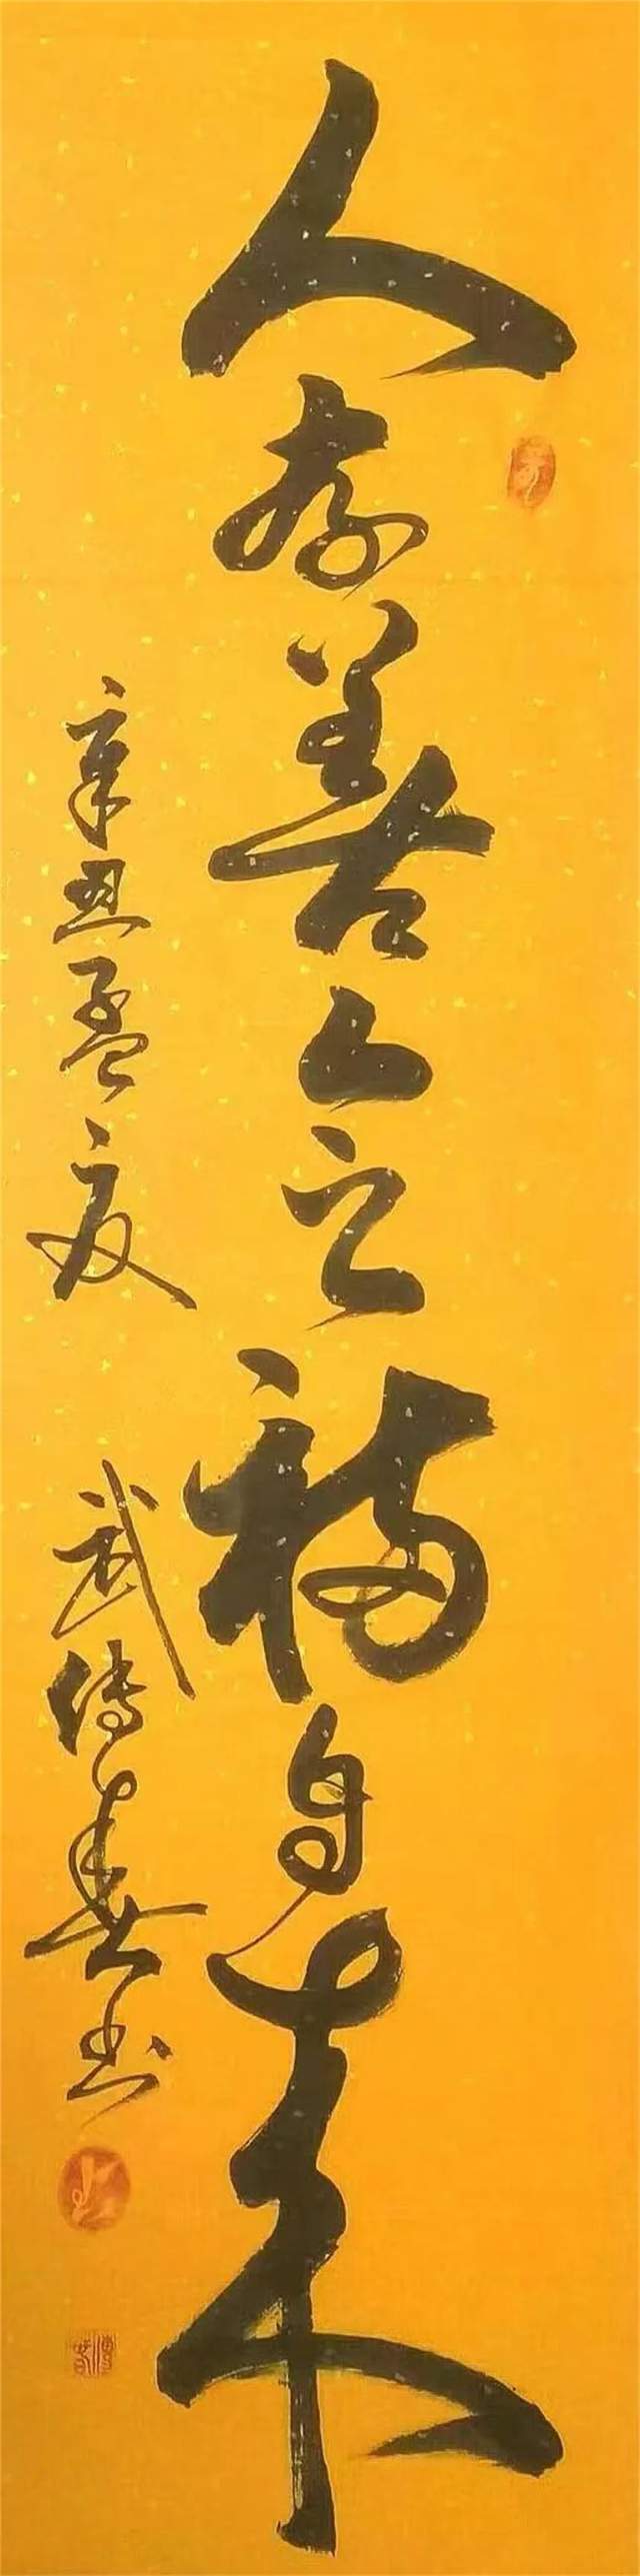 人存善念福自来
辛丑孟夏 武传春书